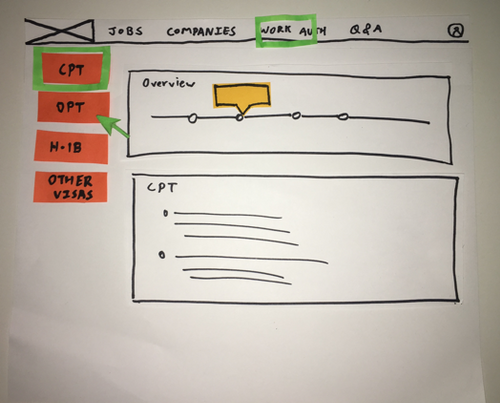 JOBS COMPANIES WORK AUTH Q&A
CPT
OPT
H-1B
OTHER
VISAS
Overview
CPT